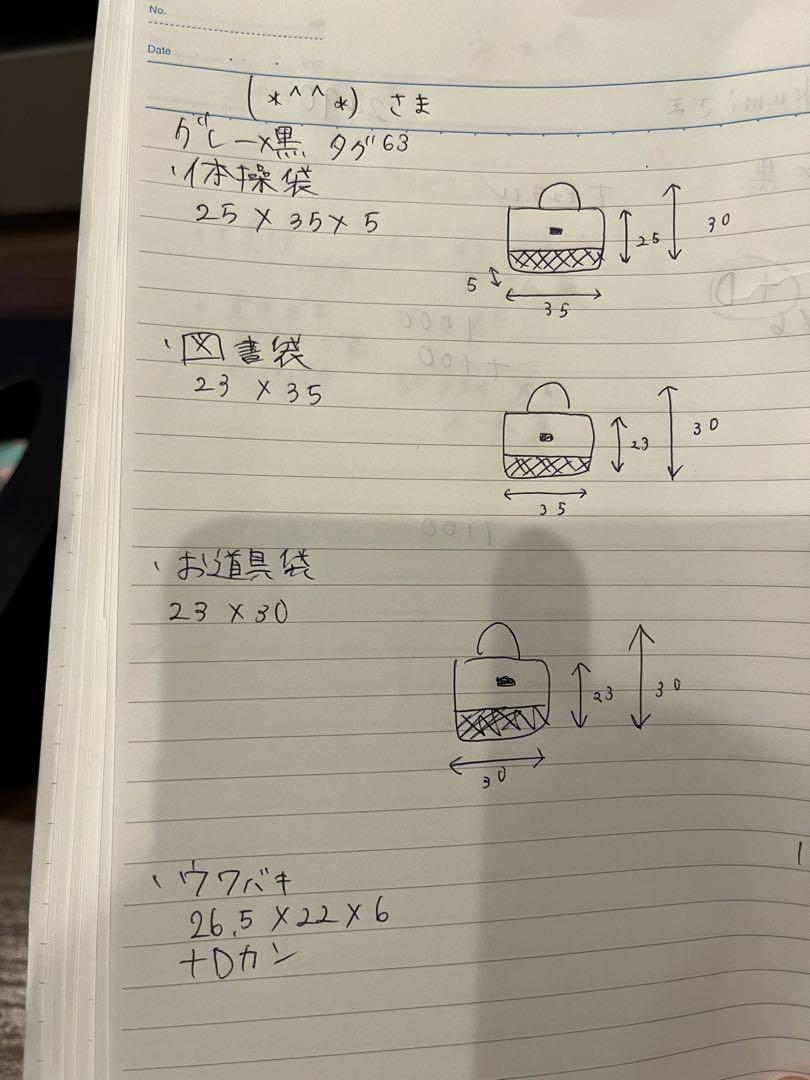 No.
Date
(*^^*) さま
グレー×黒 タグ63
・体操袋
25×35×5
25
30
5
35
・図書袋
23×35
23
30
35
・お道具袋
23×30
23
30
30
・ウワバキ
26.5×22×6
+Dカン